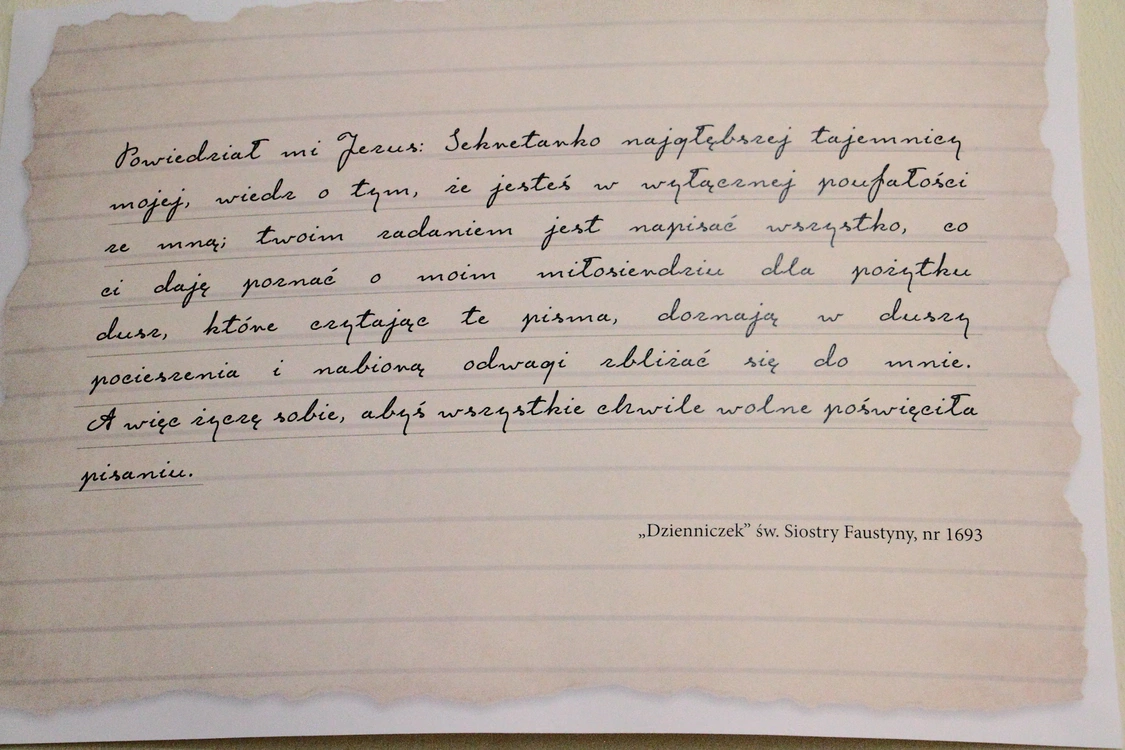 Powiedział mi Jezus: Sekretarko najgłębszej tajemnicy
mojej, wiedz o tym, że jesteś w wyłącznej poufałości
ze mną; twoim zadaniem jest napisać wszystko, co
ci daję poznać o moim miłosierdziu dla pożytku
dusz, które czytając te pisma, doznają w duszy
pocieszenia i nabiorą odwagi zbliżać się do mnie.
A więc życzę sobie, abyś wszystkie chwile wolne poświęciła
pisaniu.
„Dzienniczek” św. Siostry Faustyny, nr 1693